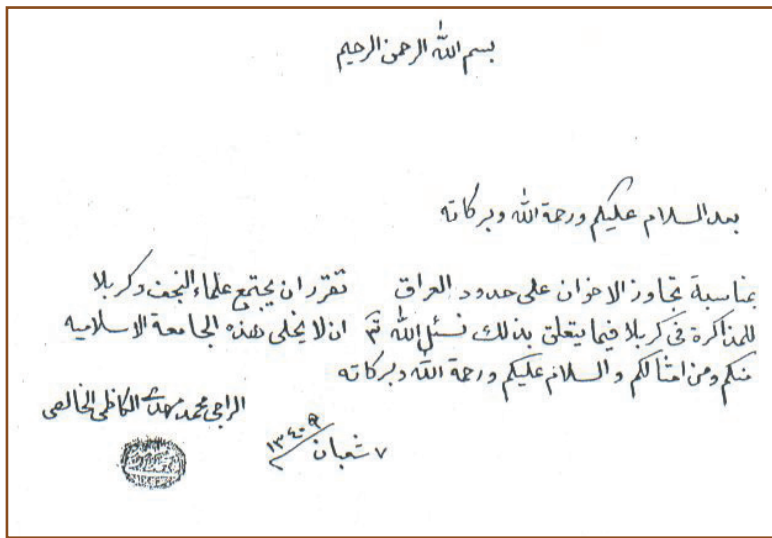 بسم الله الرحمن الرحيم
بعد السلام عليكم ورحمة الله وبركاته
بمناسبة تجاوز الاخوان على حدود العراق تقرر ان يجتمع علماء النجف وكربلا
للمذاكرة في كربلا فيما يتعلق بذلك نسئل الله تع ان لا يخلى هذه الجامعة الاسلاميه
منكم ومن امثالكم والسلام عليكم ورحمة الله وبركاته
الراجي محمد مهدي الكاظمي الخالصي
٧ شعبان ١٣٤٠